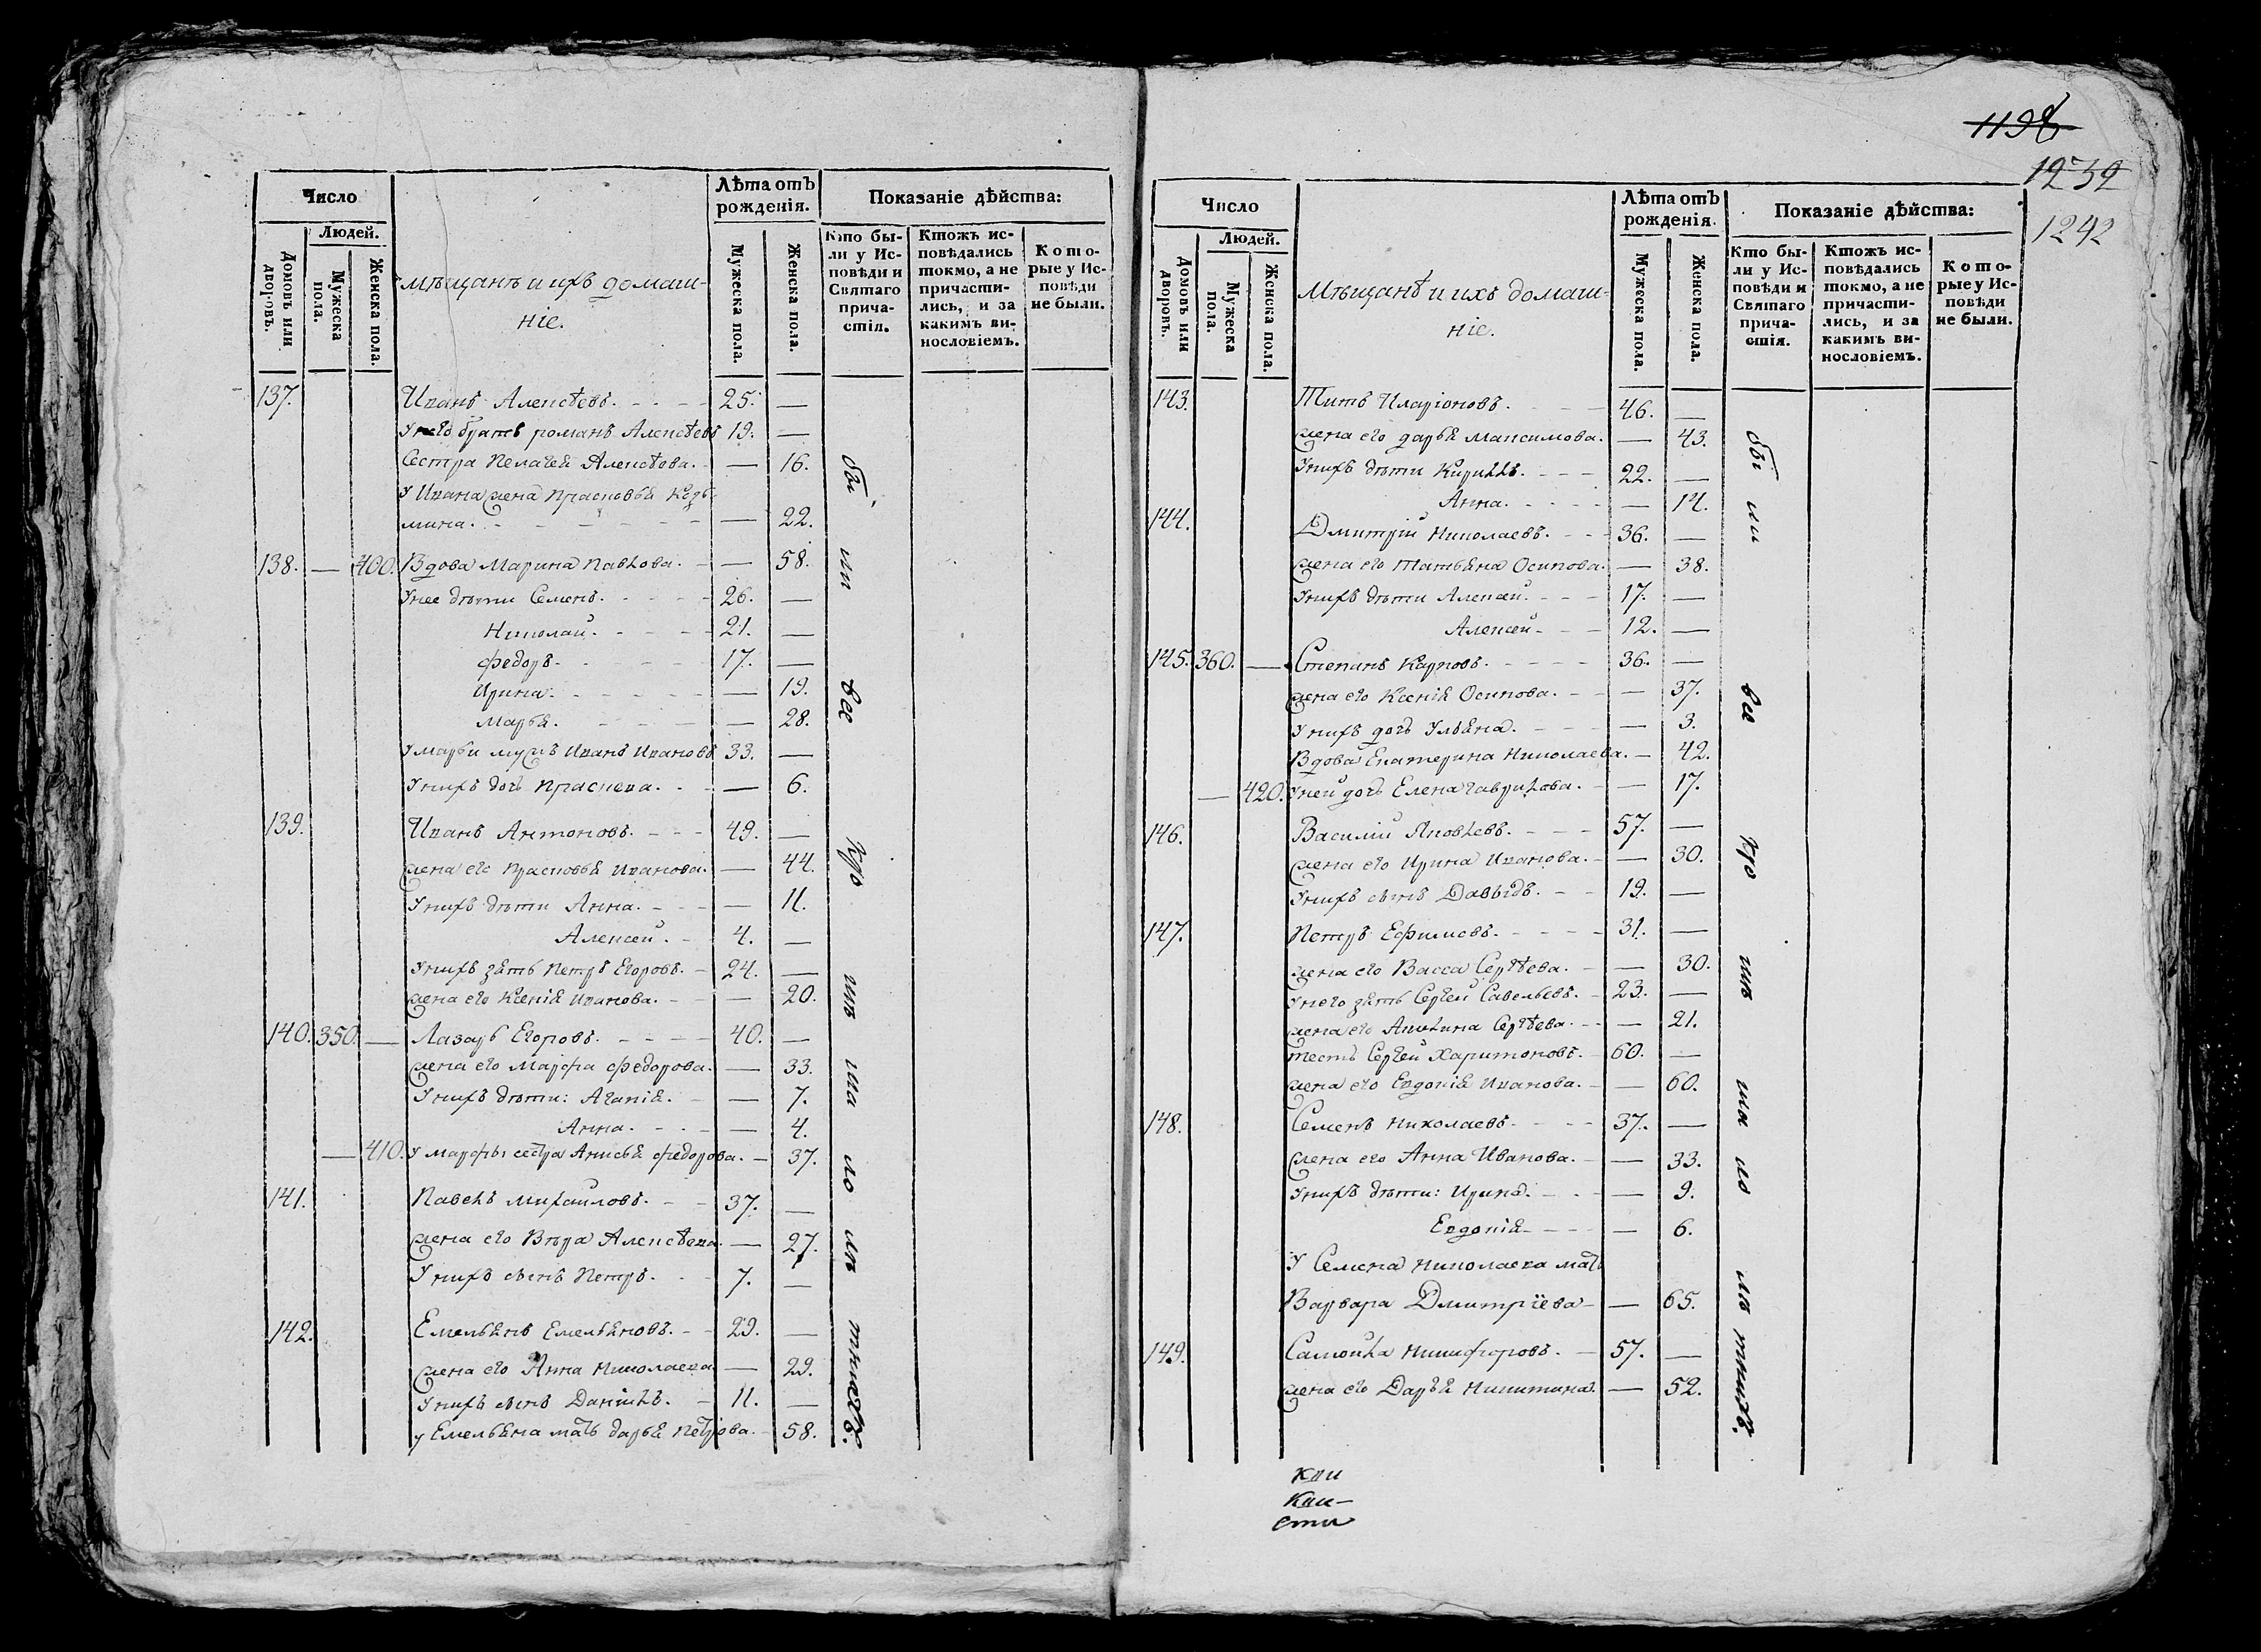 Число
Людей.
Домовъ или дворовъ.
Мужеска пола.
Женска пола.
Мѣщанъ и ихъ домаш-
ніе.
Лѣта отъ рожденія.
Мужеска пола.
Женска пола.
Показаніе дѣйства:
Кто бы-
ли у Ис-
повѣди и
Святаго
прича-
стія.
Ктожъ ис-
повѣдались
токмо, а не
причасти-
лись, и за
какимъ ви-
нословіемъ.
Кото-
рые у Ис-
повѣди
не были.
137. Иванъ Алексѣевъ. 25. —
У него братъ романъ Алексѣевъ 19. —
Сестра Пелагея Алексѣева. — 16.
У Ивана жена Прасковья Козь-
мина. — 22.
138. — 400. Вдова Марина Павлова. — 58.
У нее дѣти Семенъ. 26. —
Николай. 21. —
Федоръ. 17. —
Ирина. — 19.
Марья. — 28.
У марьи мужъ Иванъ Ивановъ 33. —
У нихъ дочь Прасковa. — 6.
139. Иванъ Антоновъ. 49. —
жена его Прасковья Иванова. — 44.
У нихъ дѣти Анна. — 11.
Алексей. 4. —
У нихъ зять Петръ Егоровъ. 24. —
жена его Ксенія Иванова. — 20.
140. 350. — Лазарь Егоровъ. 40. —
жена его Марфа Федорова. — 33.
У нихъ дѣти: Агапія. — 7.
Анна. — 4.
— 410. У марфы сестра Анисья федорова. — 37.
141. Павелъ михайловъ. 37. —
жена его Вѣра Алексѣева. — 27.
У нихъ сынъ Петръ. 7. —
142. Емельянъ Емельяновъ. 29. —
жена его Анна Николаева — 29.
У нихъ сынъ Даніилъ. 11. —
у Емельяна мать дарья петрова. 58.
бы ли все кро мѣ ма ло лѣ тнихъ.
1198
1232
1242
Число
Людей.
Домовъ или дворовъ.
Мужеска пола.
Женска пола.
Мѣщанѣ и ихъ домаш-
ніе.
Лѣта отъ рожденія.
Мужеска пола.
Женска пола.
Показаніе дѣйства:
Кто бы-
ли у Ис-
повѣди и
Святаго
прича-
стія.
Ктожъ ис-
повѣдались
токмо, а не
причасти-
лись, и за
какимъ ви-
нословіемъ.
Кото-
рые у Ис-
повѣди
не были.
143. Титъ Иларіоновъ. 46. —
жена его дарья максимова. — 43.
У нихъ дѣти Кирилъ. 22. —
Анна. — 14.
144. Дмитрій Николаевъ. 36. —
жена его татьяна Осипова. — 38.
У нихъ дѣти Алексей. 17. —
Алексей 12. —
145. 360. — Степанъ Карповъ. 36. —
жена его Ксенія Осипова. — 37.
У нихъ дочь Ульяна. — 3.
Вдова Екатерина Николаева. — 42.
— 420. У ней дочь Елена гаврилова. — 17.
146. Василій Яковлевъ. 57. —
жена его Ирина Иванова. — 30.
У нихъ сынъ Давыдъ. 19. —
147. Петръ Ефимовъ. 31. —
жена его Васса Сергѣева. — 30.
У него зять Сергей Савельевъ. 23. —
жена его Акилина Сергѣева. — 21.
тесть Сергей Харитоновъ. 60. —
жена его Евдокія Иванова. — 60.
148. Семенъ Николаевъ. 37. —
жена его Анна Иванова. — 33.
У нихъ дѣти: Ирина. — 9.
Евдокія — 6.
У Семена николаева мать
Варвара Дмитріева — 65.
149. Самойла Никифоровъ. 57. —
жена его Дарья Никитина. — 52.
бы ли все кро мѣ ма ло лѣ тнихъ.